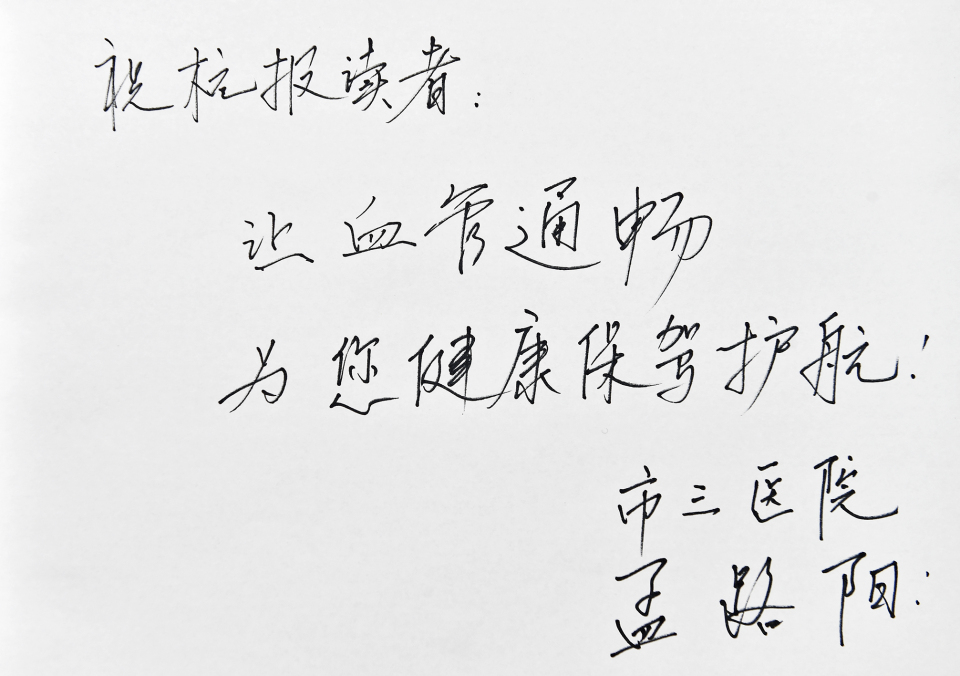 祝杭报读者：
让血管通畅
为您健康保驾护航！
市三医院
孟路阳：